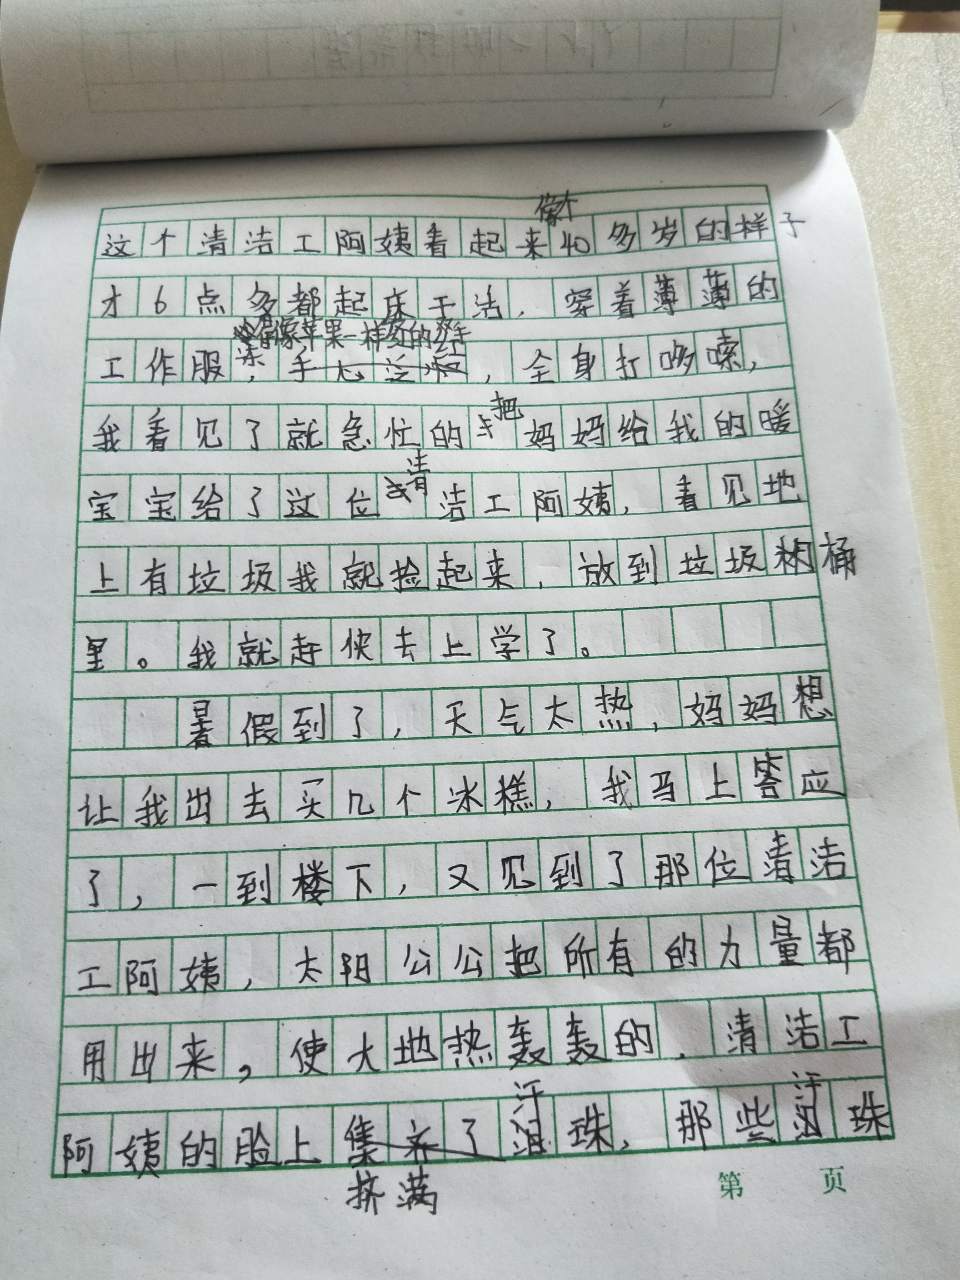 这个清洁工阿姨看起来像个40多岁的样子
才6点多都起床干活，穿着薄薄的
冻得像苹果一样红的双手
工作服，手心泛红，全身打哆嗦，
我看见了就急忙的把妈妈给我的暖
宝宝给了这位清洁工阿姨，看见地
上有垃圾我就捡起来，放到垃圾桶
里。我就赶快去上学了。
暑假到了，天气太热，妈妈想
让我出去买几个冰糕，我马上答应
了，一到楼下，又见到了那位清洁
工阿姨，太阳公公把所有的力量都
用出来，使大地热轰轰的，清洁工
阿姨的脸上挤满了汗珠，那些汗珠
第 页